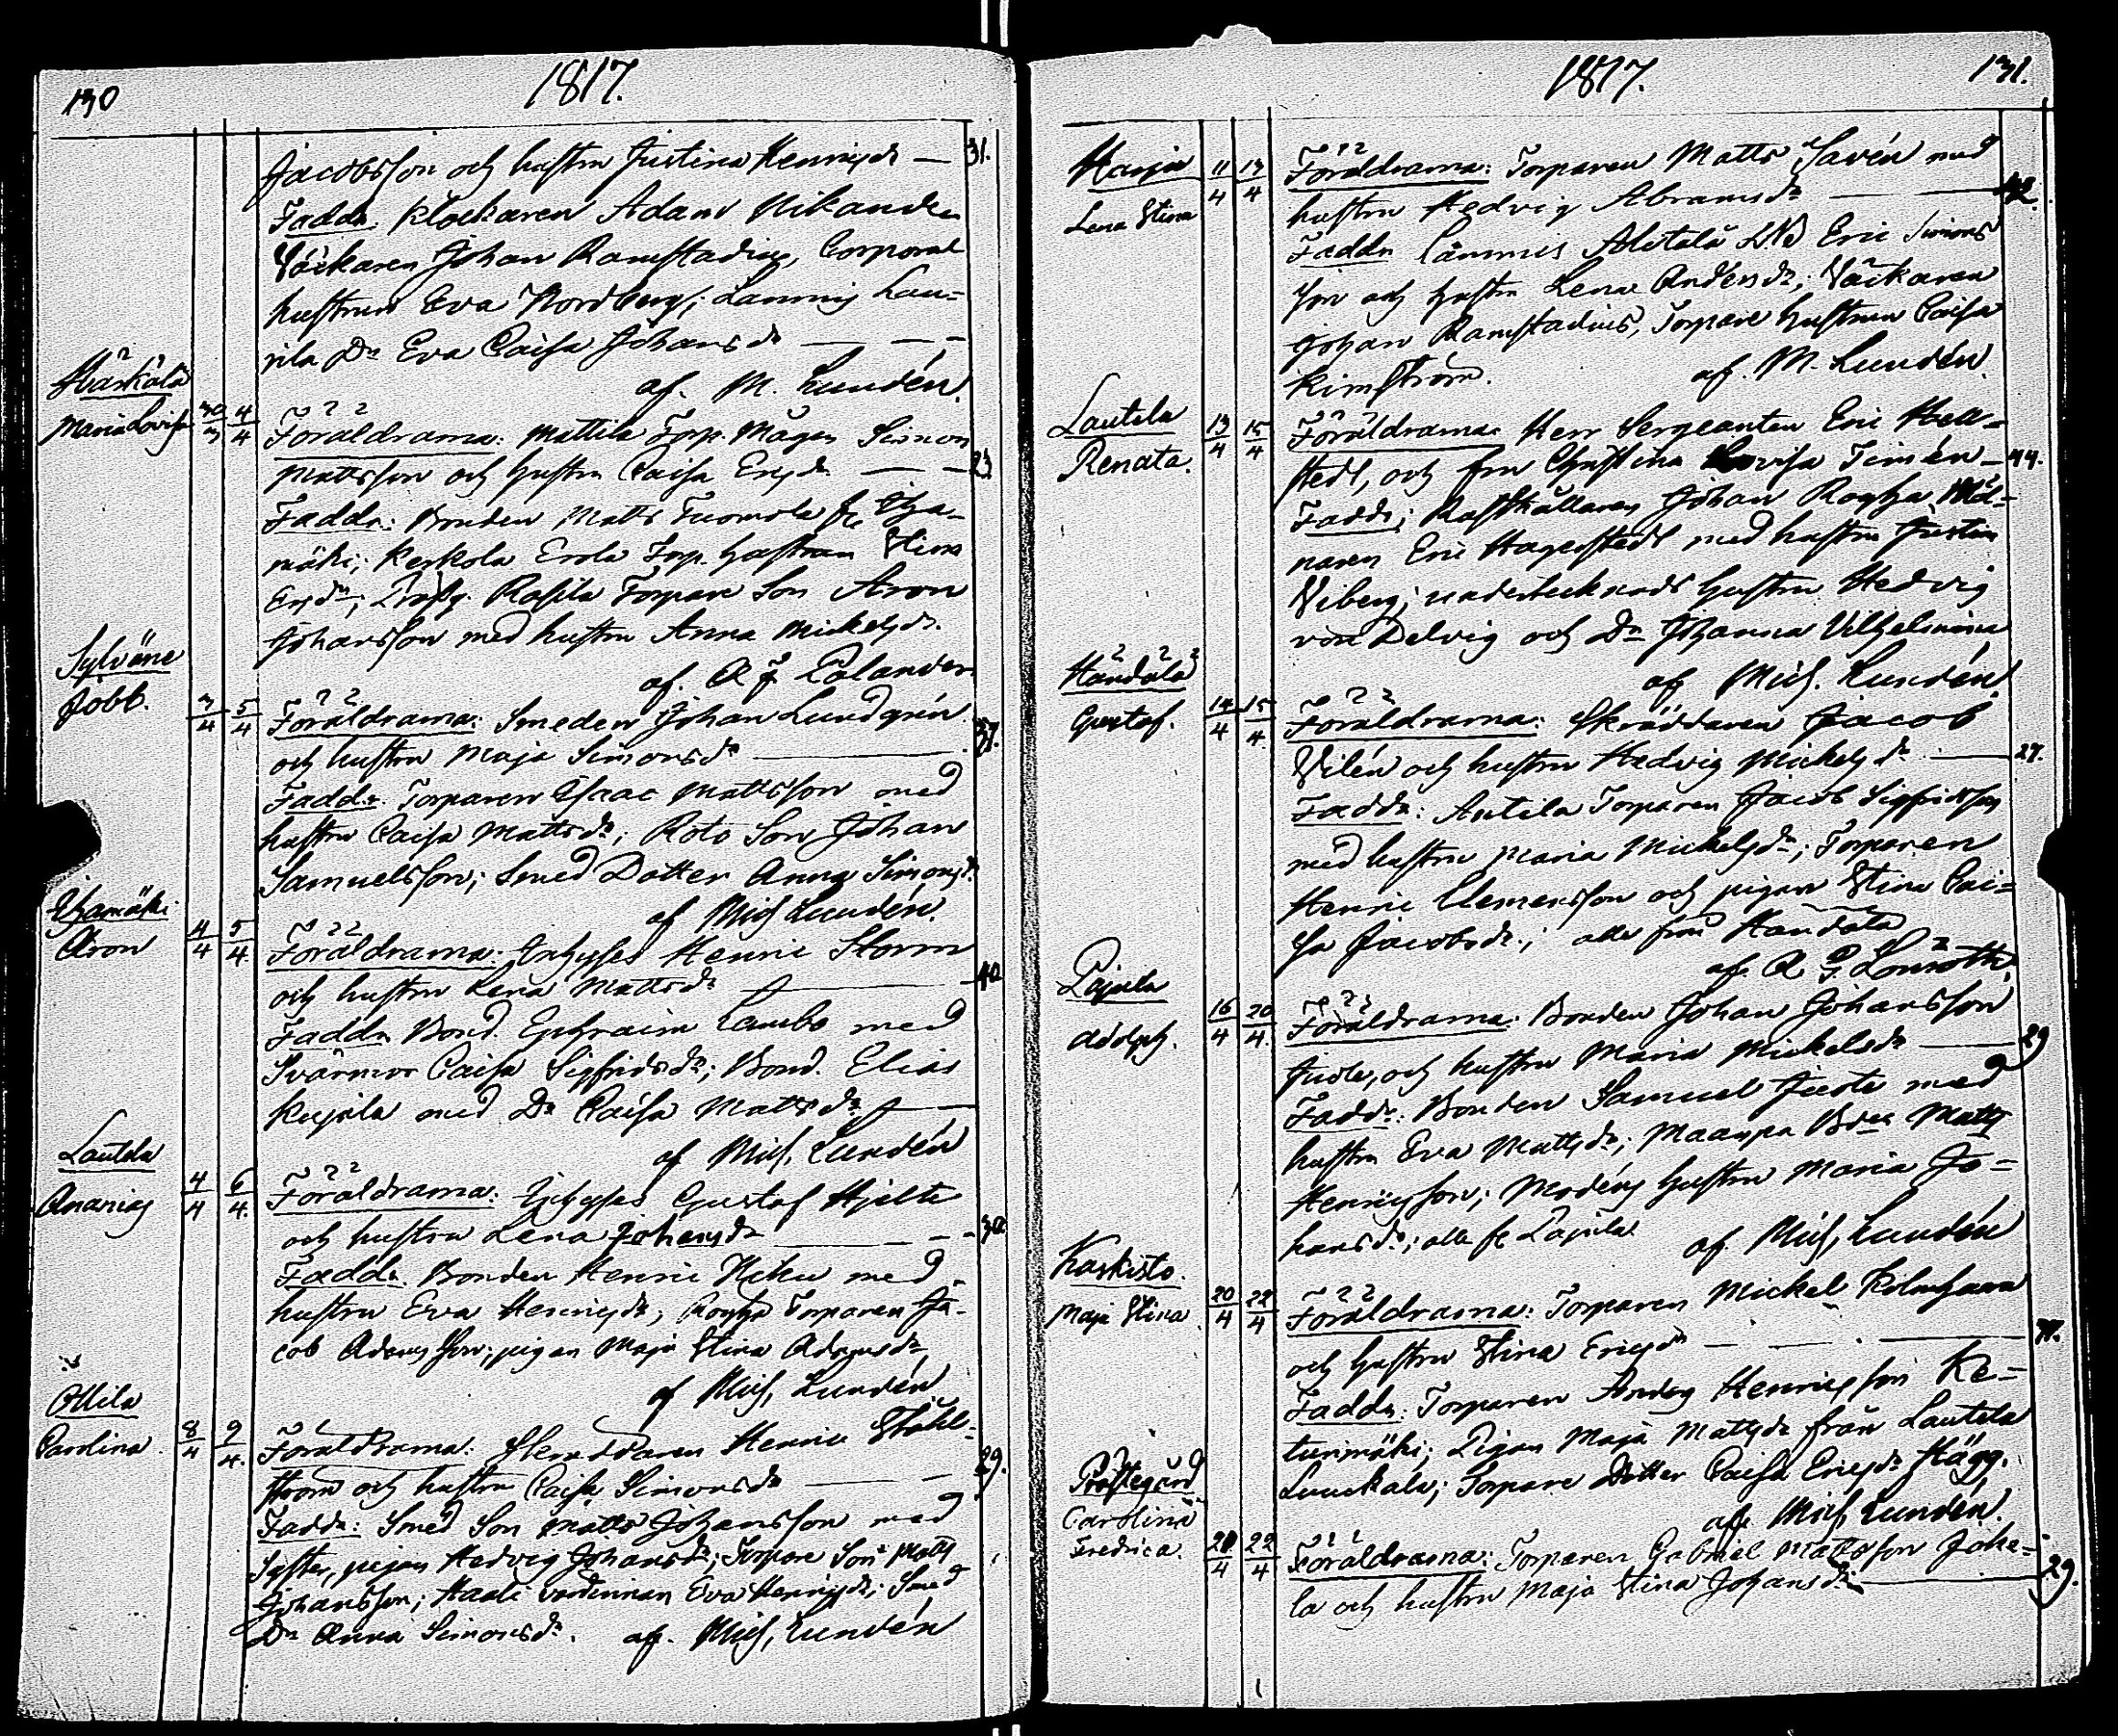 130
1817.
Jacobsson och hustru Justina Henrigsdr — 31.
Faddr. Klockaren Adam Nikander
Väfkaren Johan Ramstadius, Corporal
hustrun Eva Nordberg; Lammis Lau=
rila Dr Eva Caisa Johansdr
af. M. Lundén.
Härkälä
Maria Lovisa 30/3 4/4
Föräldrarna: Mattila Torp. Mågen Simon
Mattsson och hustru Caisa Ersdr — 23
Faddr: Bonden Matts Tuomola fr
mäki; Kerkola Erola Torp. hustrun Stina
Ersdr; Rasila Torpare Son Aron
Johansson med hustru Anna Mickelsdr.
af. A J Palander
Sylväne
Jobb. 3/4 5/4
Föräldrarna: Smeden Johan Lundgrén
och hustru Maja Simonsdr — 37.
Faddr. Torparen Isaac Mattsson med
hustru Caisa Mattsdr; Roto Son Johan
Samuelsson; Smed Dotter Anna Simonsdr
af Mich Lundén.
Aron 4/4 5/4
Föräldrarna: Inhyses Henric Storm
och hustru Lena Mattsdr — 40
Faddr Bond. Ephraim Lambo med
Svärmor Caisa Sigfridsdr; Bond. Elias
Kujala med Dr Caisa Mattsdr
af Mich, Lundén
Lautela
Ananias 4/4 6/4
Föräldrarna: Inhyses Gustaf Hjelte
och hustru Lena Johansdr — 30
Faddr. Bonden Henric Heku med
hustru Eva Henrigsdr; Torparen Ja-
cob Adamsson; pigan Maja Stina Adamsdr
af Mich, Lundén
Ollila
Carolina. 8/4 9/4
Föräldrarna: Skräddaren Henric Ståhl=
ström och hustru Caisa Simonsdr — 29.
Faddr: Smed Son Matts Johansson med
Syster, pigan Hedvig Johansdr; Torpare Son Matts
Johansson; Haali värdinnan Eva Henrigsdr; Smed
Dr Anna Simonsdr. af. Mich, Lundén
1817.
131.
Harja
Lena Stina 11/4 13/4
Föräldrarna: Torparen Matts Savén med
hustru Hedvig Abramsdr — 42.
Faddr Lammis Alitalo Eric Simons
son och hustru Lena Andersdr; Väfkaren
Johan Ramstadius, Torpare hustrun Caisa
Kimström. af. M. Lundén.
Lautela
Renata. 13/4 15/4
Föräldrarna: Herr Sergeanten Eric Hell=
stedt, och fru Christina Lovisa Timén — 44.
Faddr; Rusthållaren Johan Roykä Möl=
naren Eric Hagerstedt med hustru Justina
Viberg; undertecknads hustru Hedvig
von Delvig och Dr Johanna Vilhelmina
af Mich. Lundén.
Händälä
Gustaf. 14/4 15/4
Föräldrarna: Skräddaren Jacob
Vilén och hustru Hedvig Mickelsdr — 27.
Faddr: Antila Torparen Jacob Sigfridsson
med hustru Maria Mickelsdr; Torparen
Henric Clemensson och pigan Stina Cai=
sa Jacobsdr; alla från Händälä
af. A G. Lönroth.
Pajula
Adolph. 16/4 20/4
Föräldrarna: Bonden Johan Johansson
Juste, och hustru Maria Mickelsdr — 29
Faddr: Bonden Samuel Juste med
hustru Eva Mattsdr; Maanpä Matts
Henrigsson; Modéns hustru Maria Jo=
hansdr; alla fr Pajula. af. Mich, Lundén
Karkisto.
Maja Stina 20/4 22/4
Föräldrarna: Torparen Mickel Kolmhaara
och hustru Stina Ericsdr — 37.
Faddr: Torparen Anders Henrigsson Ke=
tunmäki; Pigan Maja Mattsdr från Lautela
Luuckala; Torpare Dotter Caisa Ericsdr Hägg.
af Mich, Lundén.
Prästegård
Carolina
Fredrica. 20/4 22/4
Föräldrarna: Torparen Gabriel Mattsson Joke=
la och hustru Maja Stina Johansdr — 29.